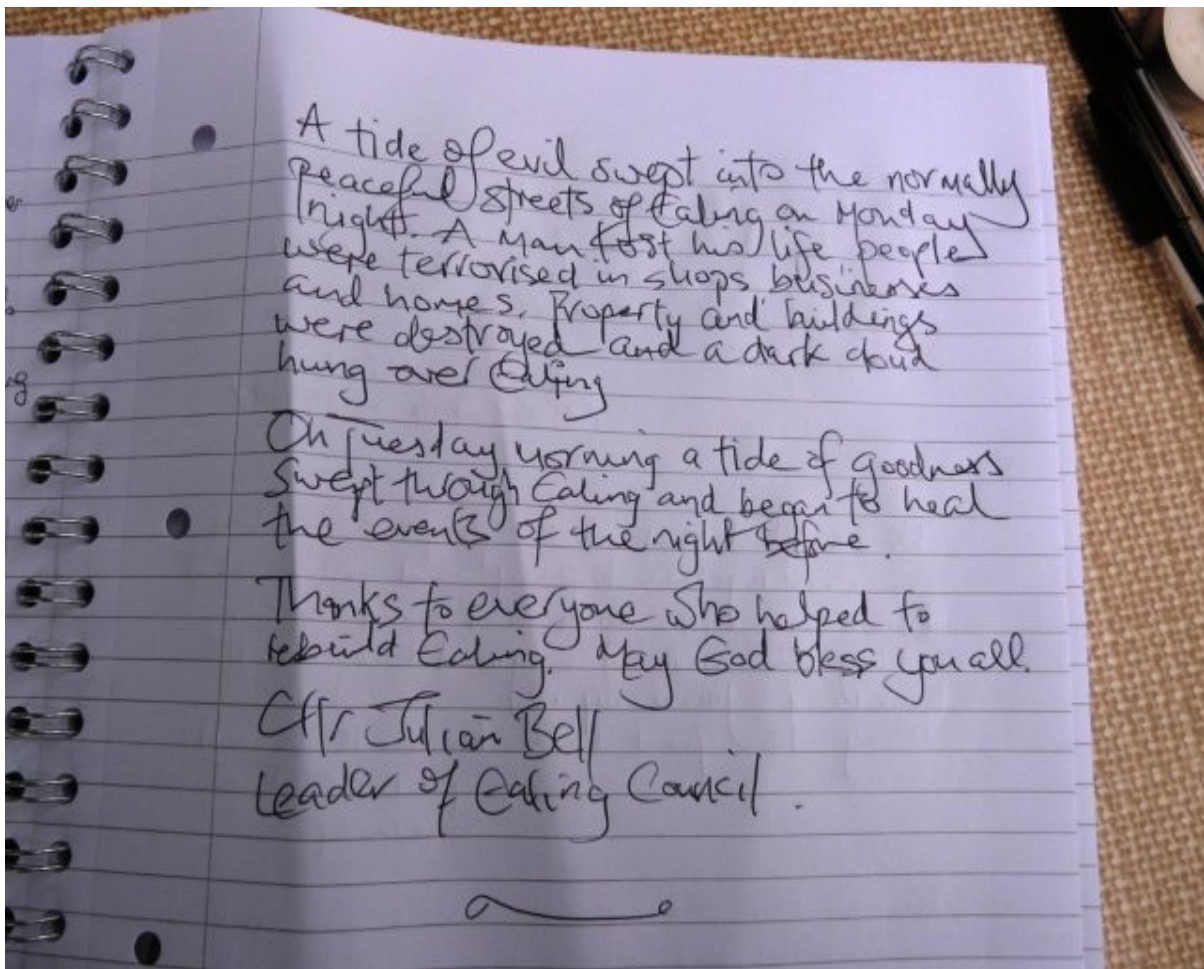 A tide of evil swept into the normally
peaceful streets of Ealing on Monday
night. A Man lost his life people
were terrorised in shops businesses
and homes. Property and buildings
were destroyed and a dark cloud
hung over Ealing
On Tuesday morning a tide of goodness
swept through Ealing and began to heal
the events of the night before.
Thanks to everyone who helped to
rebuild Ealing. May God bless you all.
Cllr Julian Bell
Leader of Ealing Council.